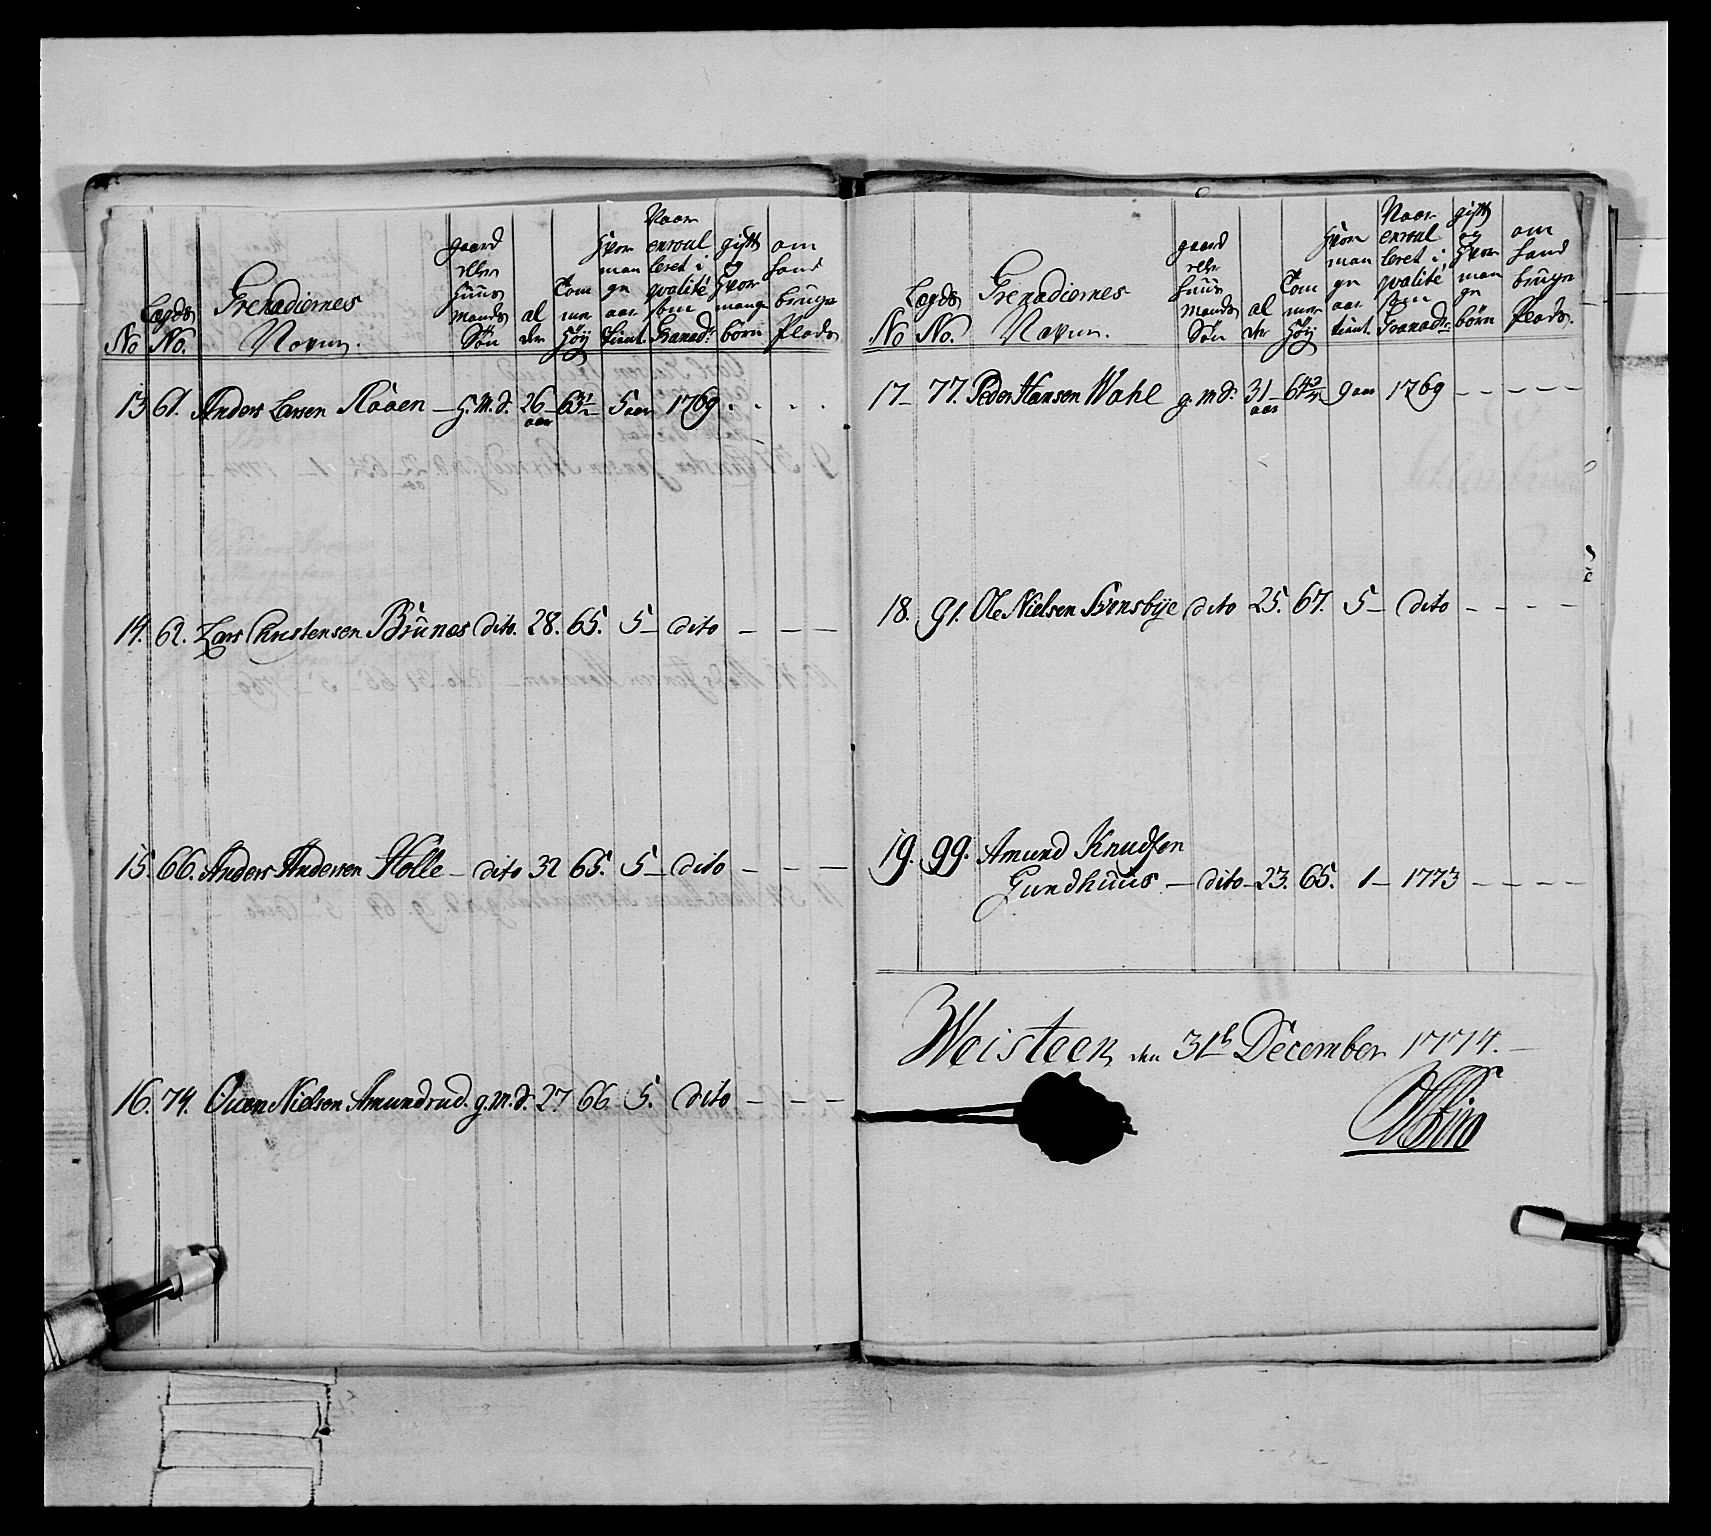 No
Lægds No.
Grenadiernes Navne.
gaard eller Huus mands Søn
al der
Tom mer Høy
Hvor man ge aar tient.
Naar enroul leret i qvalité som Granadr.
gift og Hvor mange børn
om hand bruger Plads
13 61. Anders Larsen Raaen – H.M.S. 26 aar 63½ 5 aar 1769. . . .
14. 62. Lars Christensen Brúnæs dito. 28. 65. 5 – dito – – –
15. 66. Anders Andersen Holle – dito 32 65. 5 – dito – – –
16. 74. Ouen Nielsen Amundrud. g.m.S. 27 66 5. dito – – –
No
Lægds No.
Grenadiernes Navne.
gaard eller Huus mands Søn
al der
Tom mer Høy
Hvor man ge aar tient.
Naar enroul leret i qvalité som Granadr.
gift og Hvor man ge børn
om hand bruger Plads.
17 – 77. Peder Hansen Wahl g.m.S. 31 – aar 64 9 aar 1769 – – – –
18. 91. Ole Nielsen Svensbÿe dito 25. 67. 5 – dito – – – –
19. 99. Amund Knudsen
Gundhuus – dito – 23. 65. 1 – 1773 – – – –
Woisteen, den 31th December 1774. –